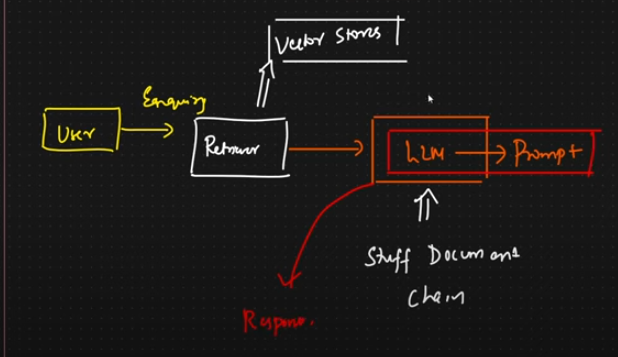 Vector Stores
Enquiry
User
Retriever
LLM
Prompt
Stuff Document
Chain
Response.